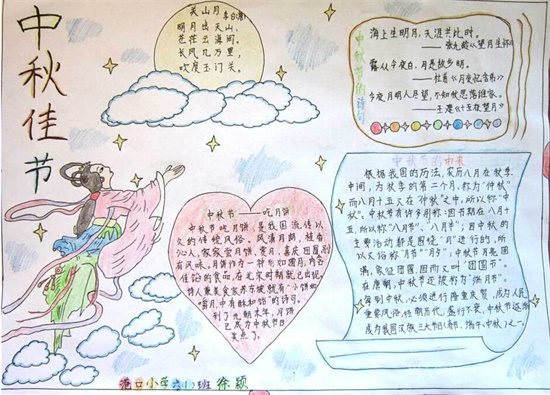 中秋佳节
关山月
李白(唐)
明月出天山,
苍茫云海间。
长风几万里,
吹度玉门关。
中秋节的诗句
海上生明月,天涯共此时。
——张九龄《望月怀
露从今夜白,月是故乡明。
——杜甫《月夜忆舍弟》
今夜月明人尽望,不知秋思落谁家。
——王建《十五夜望月》
中秋节——吃月饼
中秋节吃月饼,是我国流传以
久的传统风俗。风清月朗,桂香
沁人,家家尝月饼,赏月,喜庆团圆,别
有风味。月饼作为一种形如圆月,内含
佳馅的食品,在北宋时期就已出现。
诗人兼美食家苏东坡就有"小饼如
嚼月,中有酥和饴"的诗句。
到了元朝末年,月饼
已成为中秋节日
美点了。
中秋节的由来
根据我国的历法,农历八月在秋季
中间,为秋季的第二个月,称为"仲秋",
而八月十五又在"仲秋"之中,所以称"中
秋"。中秋节有许多别称:因节期在八月十
五,所以称"八月节"、"八月半";因中秋的
主要活动都是围绕"月"进行的,所
以又俗称"月节""月夕";中秋节月亮圆
满,象征团圆,因而又叫"团圆节"。
在唐朝,中秋节还被称为"端月节"。
每到中秋,必须进行隆重庆贺,成为人民
重要风俗,任朝历代,盛行不衰,中秋节逐渐
成为我国汉族三大节(春节、端午、中秋)之一。
港口小学六(1)班 徐颖